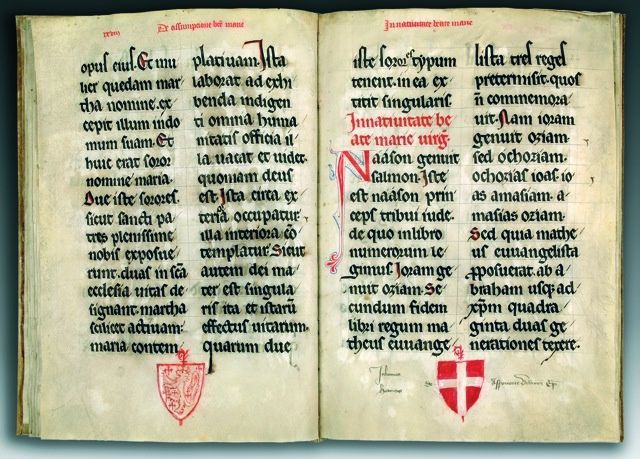 xxviij De assumptione bte marie
opus eius. Et mu
lier quedam mar
tha nomine. ex
cepit illum in do
mum suam. Et
huic erat soror
nomine maria.
Due iste sorores.
sicut sancti pa
tres plenissime
nobis exposue
runt. duas in scā
ecclesia vitas de
signant. martha
scilicet actiuam.
maria contem
platiuam. Ista
laborat ad exhi
benda indigen
ti omnia huma
nitatis officia il
la. vacat et videt.
quoniam deus
est. Ista circa ex
teriora occupatur
illa interiora cō
templatur. Sicut
autem dei ma
ter est singula
ris ita et istarū
effectus vitarum.
quarum due
In natiuitate beate marie
iste sorores typum
tenent. in ea ex
titit singularis.
In natiuitate be
ate marie virḡ.
Naason genuit
salmon. Iste
est naason prin
ceps tribus iude.
de quo in libro
numerorum le
gimus. Joram ge
nuit oziam. Se
cundum fidem
libri regum ma
theus euuange
lista tres reges
pretermisit. quos
n̄ commemora
uit. Nam ioram
genuit oziam.
sed ochoziam.
ochozias ioas. io
as amasiam. a
masias oziam.
Sed quia mathe
us euuangelista
pposuerat. ab a
braham usq; ad
xp̄m quadra
ginta duas ge
nerationes texere.